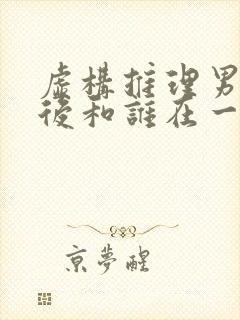 虛構推理男
後和誰在一
京夢醒